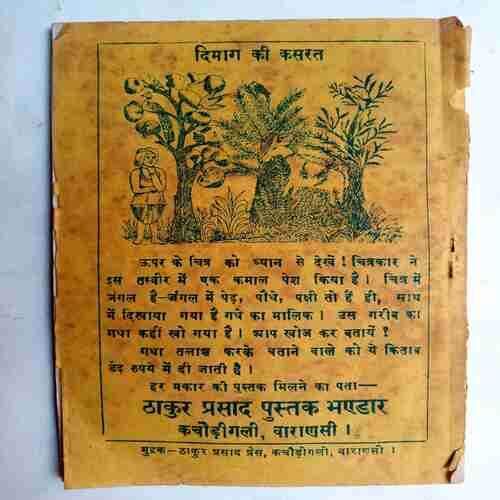 दिमाग की कसरत
ऊपर के चित्र को ध्यान से देखें ! चित्रकार ने
इस तस्वीर में एक कमाल पेश किया है । चित्र में
जंगल है-जंगल में पेड़, पौधे, पक्षी तो हैं ही, साथ
में दिखाया गया है गधे का मालिक । उस गरीब का
गधा कहीं खो गया है । आप खोज कर बतायें !
गधा तलाश करके बताने वाले को ये किताब
डेढ़ रुपये में दी जाती है ।
हर प्रकार की पुस्तक मिलने का पता—
ठाकुर प्रसाद पुस्तक भण्डार
कचौड़ीगली, वाराणसी ।
मुद्रक—ठाकुर प्रसाद प्रेस, कचौड़ीगली, वाराणसी ।